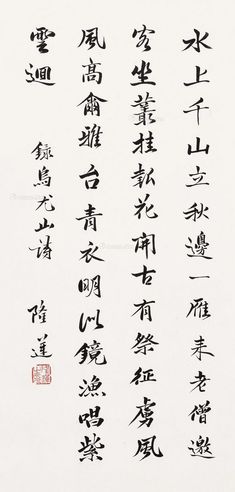 水上千山立秋邊一雁来老僧邀
客坐叢桂花開古有祭征虜風
風高爾雅台青衣明似鏡漁唱紫
雲迴
録烏尤山詩 隆蓮